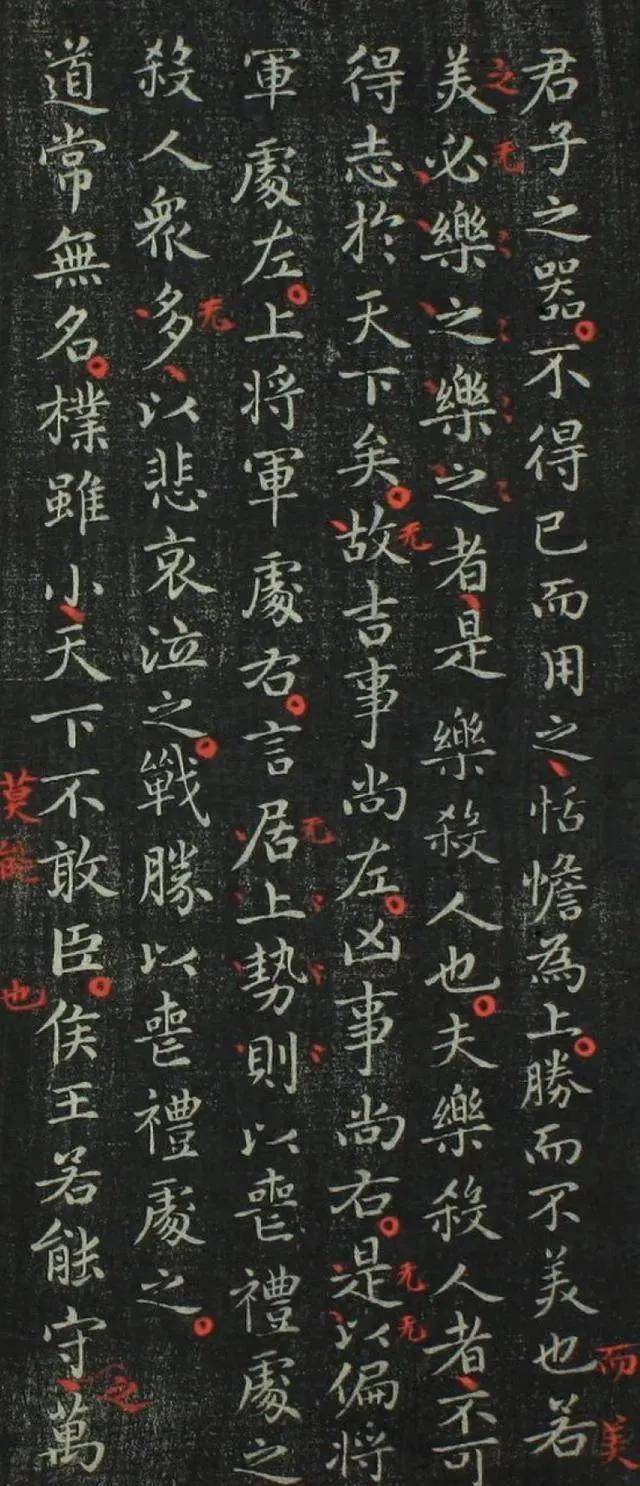 君子之器不得已而用之恬憺為上勝而不美也若
而美
美必樂之樂之者是樂殺人也夫樂殺人者不可
之无
得志於天下矣故吉事尚左凶事尚右是以偏將
无无无
軍處左上將軍處右言居上勢則以喪禮處之
无
殺人眾多以悲哀泣之戰勝以喪禮處之
无
道常無名樸雖小天下不敢臣侯王若能守萬
之
莫能也